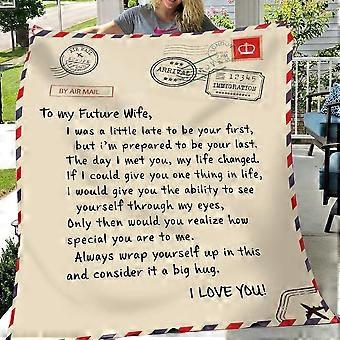 AIR MAIL
ARRIVAL
12345
IMMIGRATION
BY AIR MAIL
To my Future Wife,
I was a little late to be your first,
but i'm prepared to be your last.
The day I met you, my life changed.
If I could give you one thing in life,
I would give you the ability to see
yourself through my eyes,
Only then would you realize how
special you are to me.
Always wrap yourself up in this
and consider it a big hug.
I LOVE YOU!